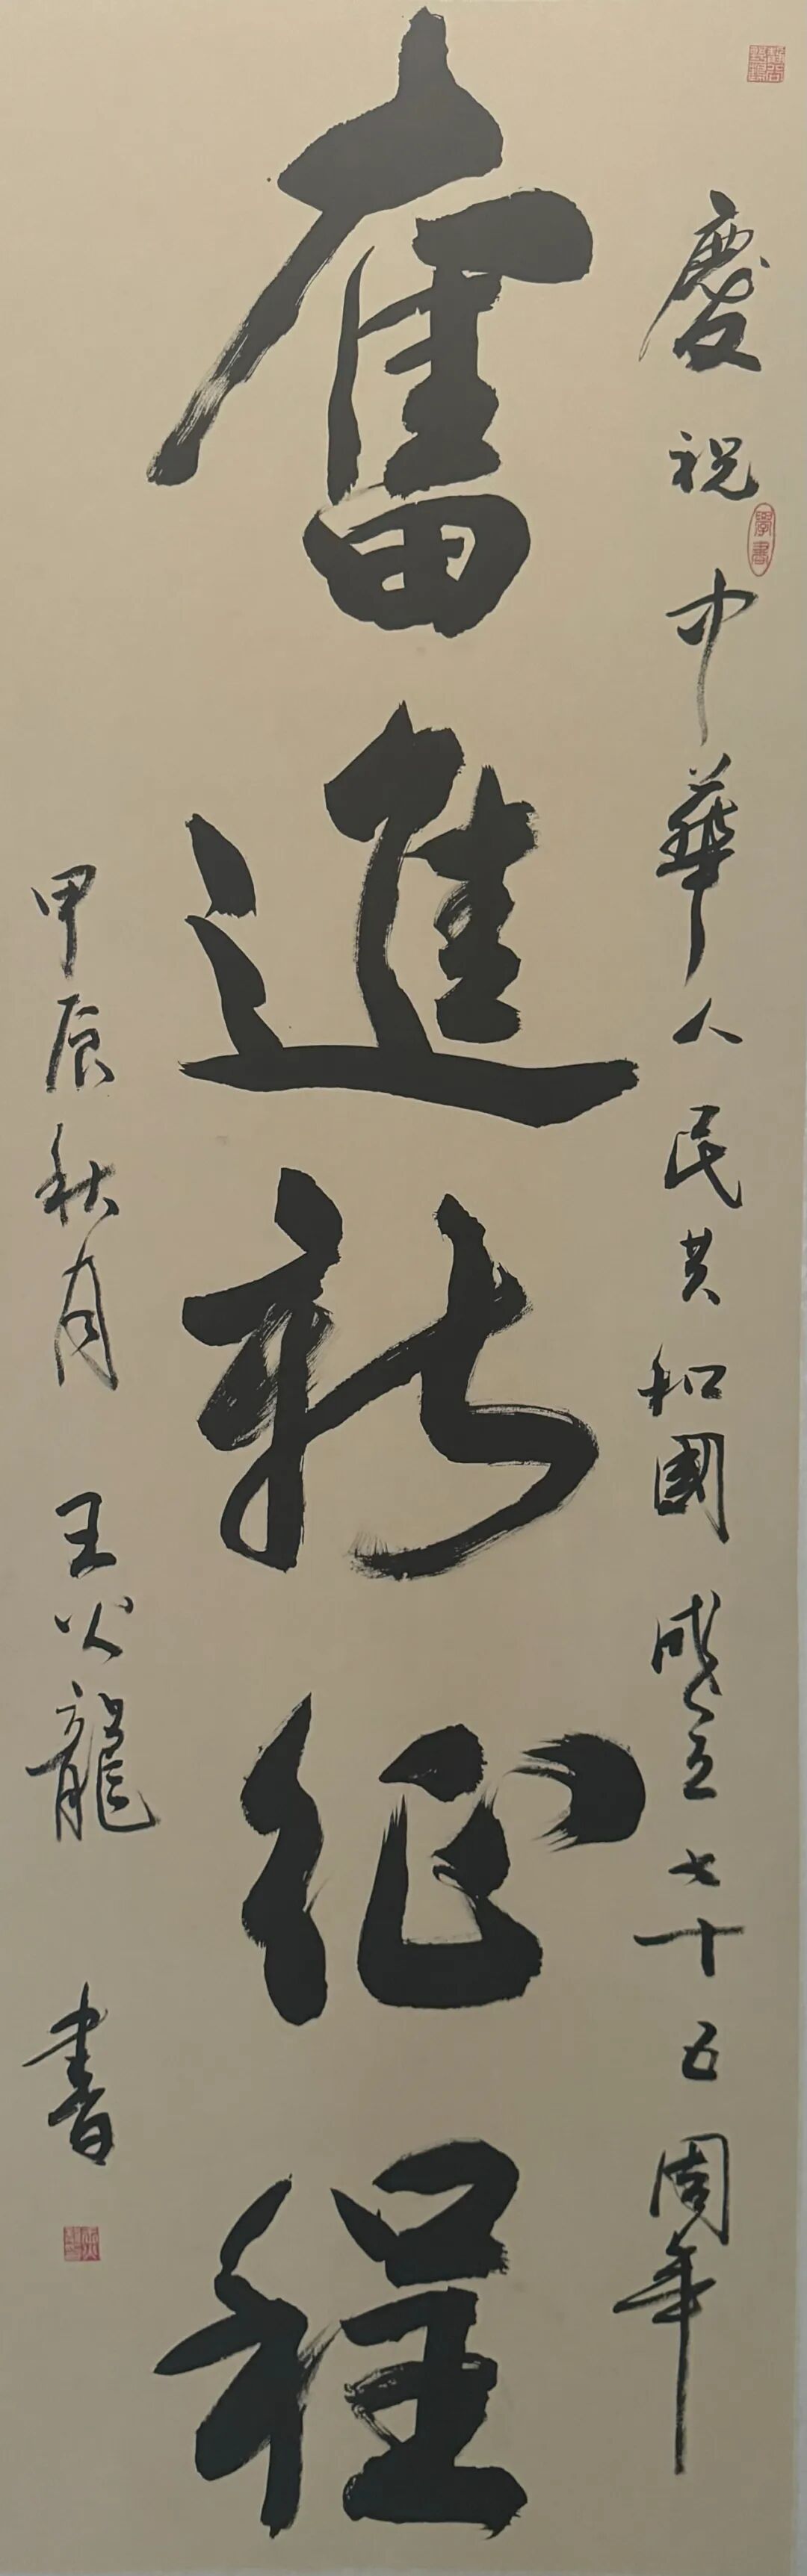 慶祝中華人民共和國成立七十五周年
奮進新征程
甲辰秋月 王火龍 書
學書